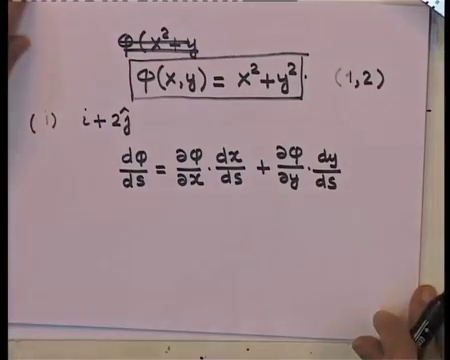 φ(x²+y
φ(x,y) = x²+y². (1,2)
(i) i+2ĵ
dφ/ds = ∂φ/∂x · dx/ds + ∂φ/∂y · dy/ds